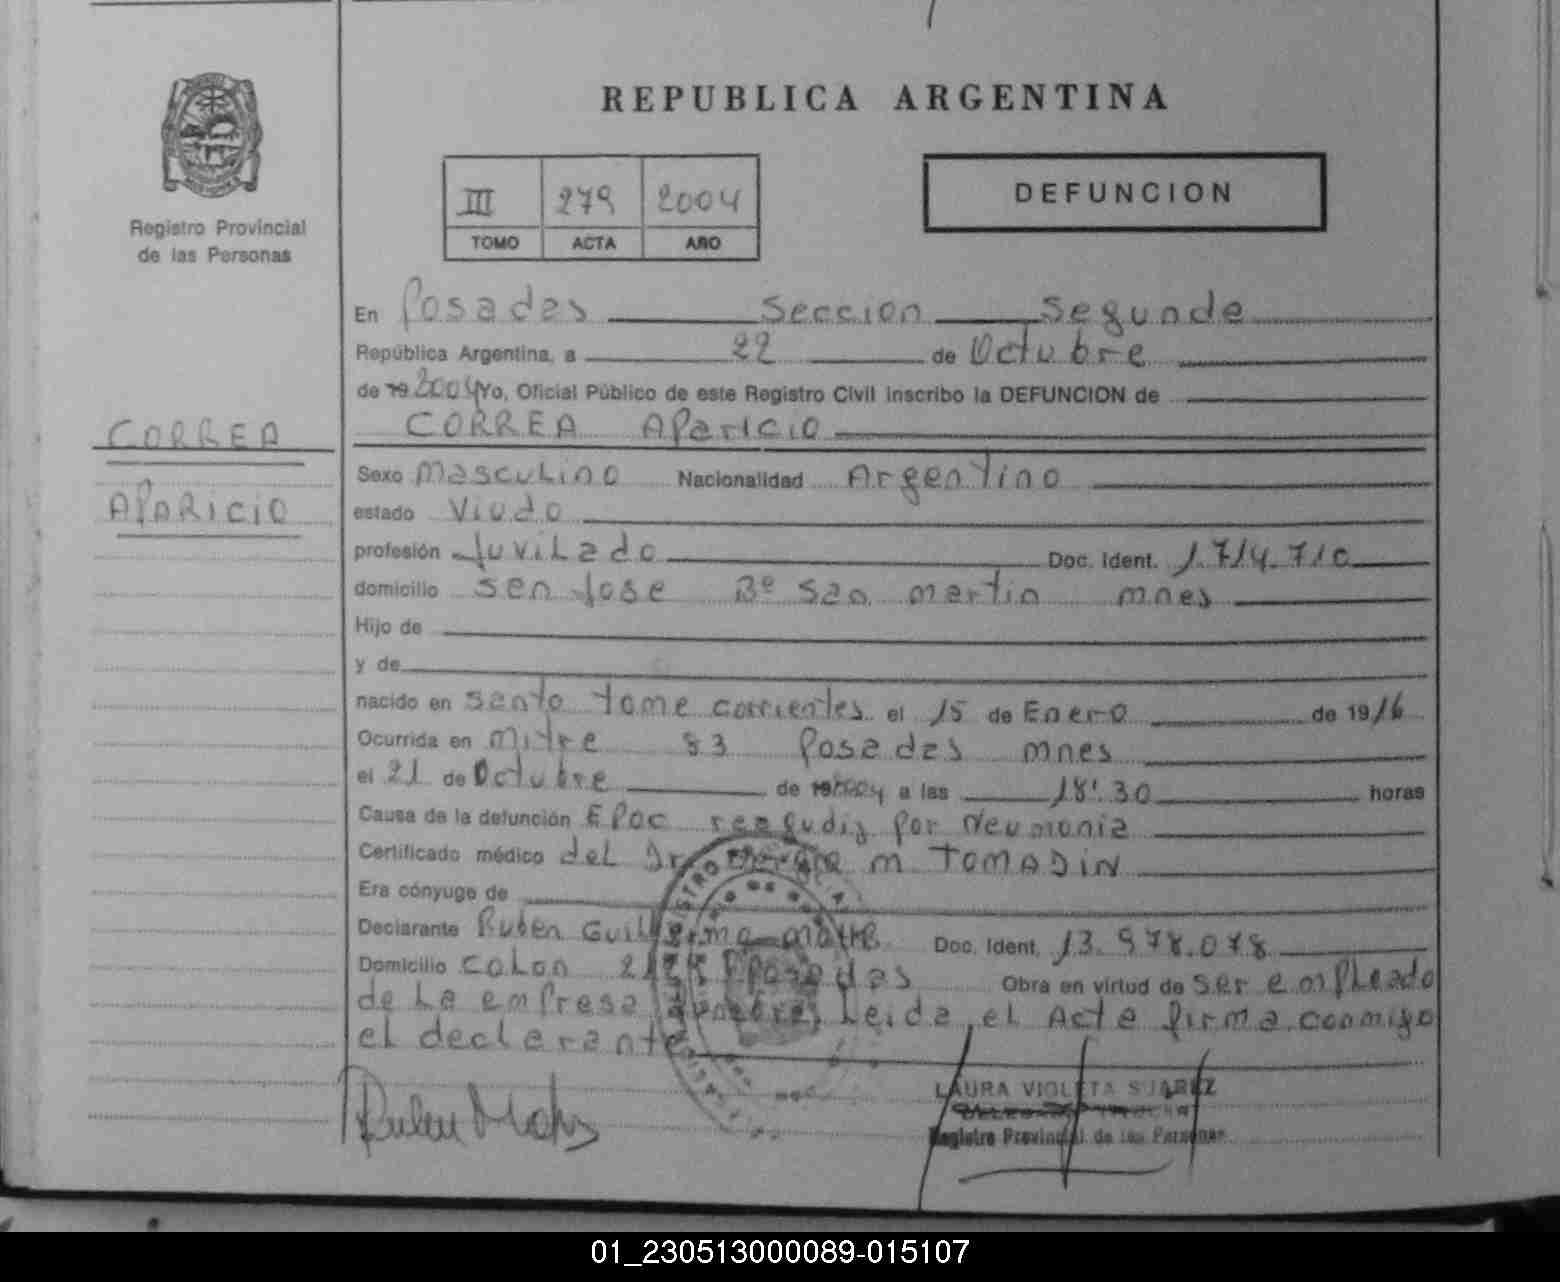 REPUBLICA ARGENTINA
Registro Provincial
de las Personas
III 279 2004
TOMO ACTA AÑO
DEFUNCION
CORREA
APARICIO
En Posadas Seccion Segunda
República Argentina, a 22 de Octubre
de 19 2004 Yo, Oficial Público de este Registro Civil inscribo la DEFUNCION de
CORREA Aparicio
Sexo masculino Nacionalidad Argentino
estado Viudo
profesión Juvilado Doc. Ident. 1.714.710
domicilio San Jose Bº San martin mnes
Hijo de
y de
nacido en Santo tome corrientes el 15 de Enero de 1916
Ocurrida en mitre 83 Posadas mnes
el 21 de Octubre de 2004 a las 18:30 horas
Causa de la defunción EPOC por Neumonia
Certificado médico del Dr m TOMADIN
Era cónyuge de
Declarante Ruben Guillermo Doc. Ident. 13.978.078
Domicilio Colon Posadas Obra en virtud de ser empleado
de la empresa Leida el Acta firma conmigo
el declarante
LAURA VIOLETA SUAREZ
Registro Provincial de las Personas
01_230513000089-015107